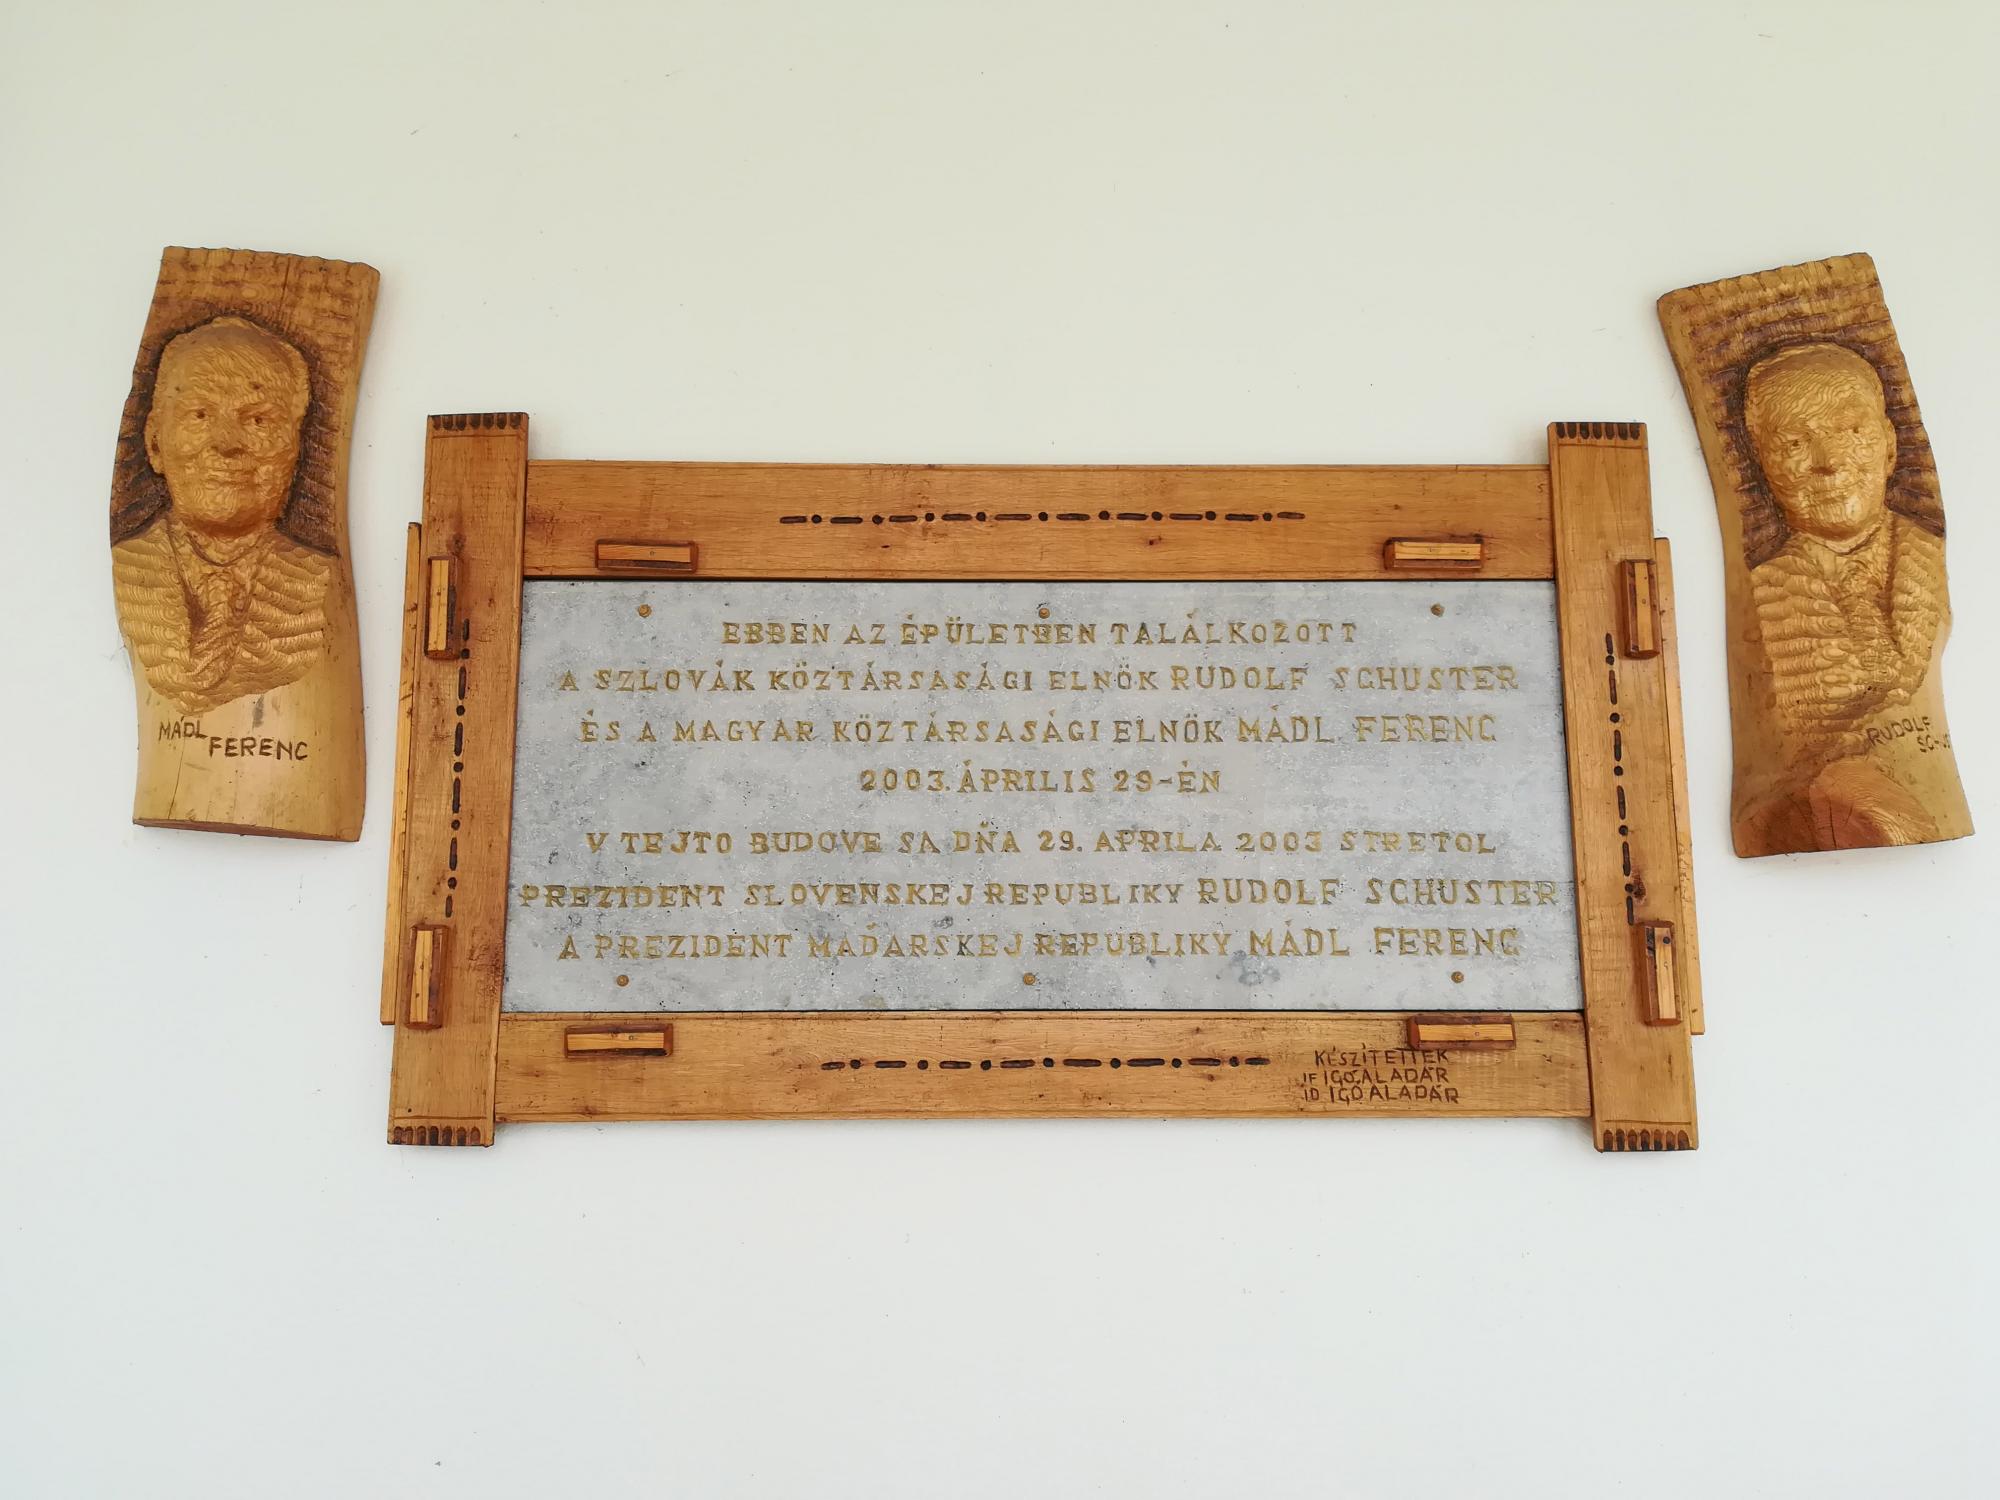 MÁDL
FERENC
EBBEN AZ ÉPÜLETBEN TALÁLKOZOTT
A SZLOVÁK KÖZTÁRSASÁGI ELNÖK RUDOLF SCHUSTER
ÉS A MAGYAR KÖZTÁRSASÁGI ELNÖK MÁDL FERENC
2003. ÁPRILIS 29-ÉN
V TEJTO BUDOVE SA DŇA 29. APRILA 2003 STRETOL
PREZIDENT SLOVENSKEJ REPUBLIKY RUDOLF SCHUSTER
A PREZIDENT MAĎARSKEJ REPUBLIKY MÁDL FERENC
KÉSZÍTETTÉK
IF IGÓ ALADÁR
ID IGÓ ALADÁR
RUDOLF